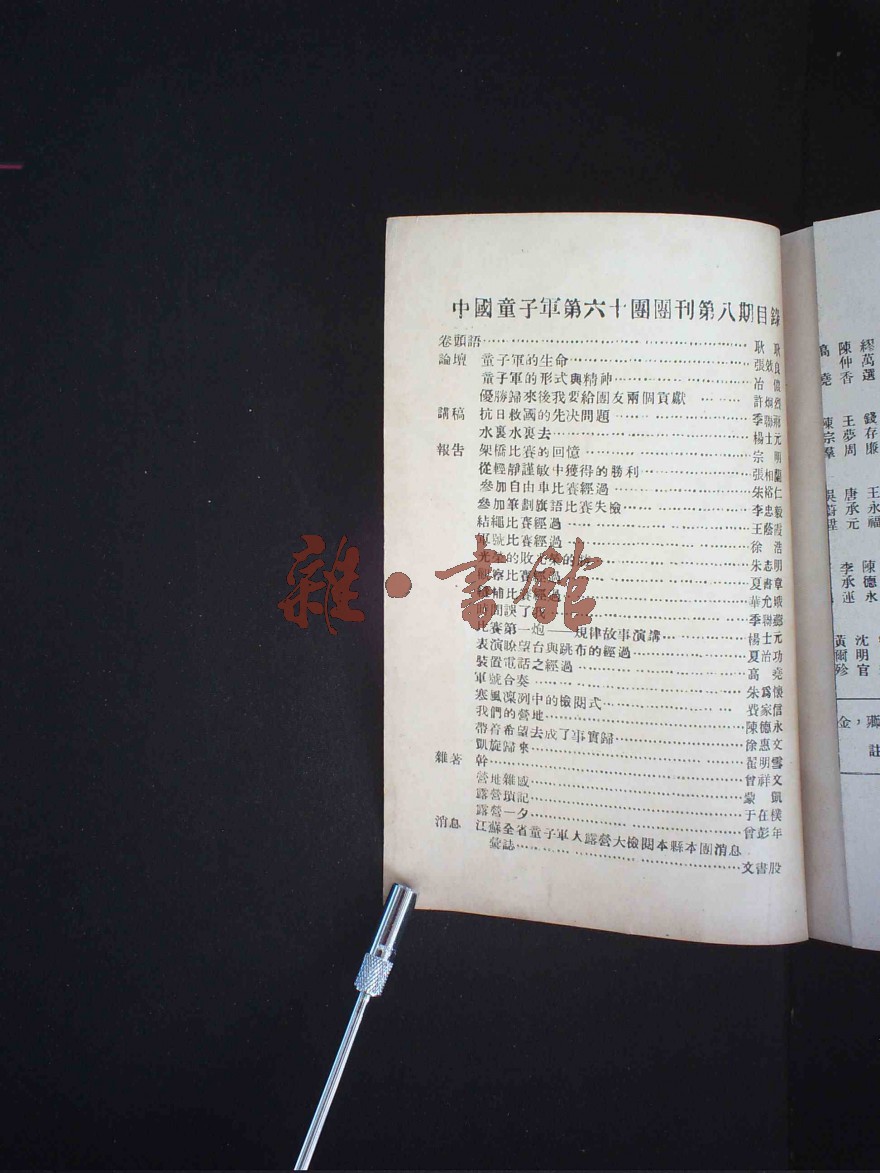 中國童子軍第六十團團刊第八期目錄
卷頭語……耿 耿
論壇 童子軍的生命……張效良
童子軍的形式與精神……冶 儂
優勝歸來後我要給團友兩個貢獻……許烱烈
講稿 抗日救國的先决問題……季鄰
水裏水裏去……楊士元
報告 架橋比賽的回憶……宗 明
從輕靜謹敏中獲得的勝利……張相蘭
參加自由車比賽經過……朱裕仁
參加筆劃旗語比賽失檢……李忠毅
結繩比賽經過……王蓓霞
軍號比賽經過……徐 浩
光榮的敗光榮的……朱志明
觀察比賽經過……夏書章
補比賽經過……華允娥
時間誤了我……季鄰
比賽第一炮——規律故事演講……楊士元
表演瞭望台與跳布的經過……夏治功
裝置電話之經過……高 堯
軍號合奏……朱爲懷
寒風凜冽中的檢閱式……費家信
我們的營地……陳德永
帶着希望去成了事實歸……徐惠文
凱旋歸來……翟明雪
雜著 幹……曾祥文
營地雜感……蒙 凱
露營瑣記……于在樸
露營一夕……曾彭年
消息 江蘇全省童子軍大露營大檢閱本縣本團消息
彙誌……文書股
陳 繆
仲 萬
堯 香 選
陳 王 錢
宗 夢 存
羣 周 廉
吳 唐 王
蔚 承 永
元 福
李 陳
承 德
蓮 永
黃 沈
爾 明
殄 官
金,
註
雜·書館